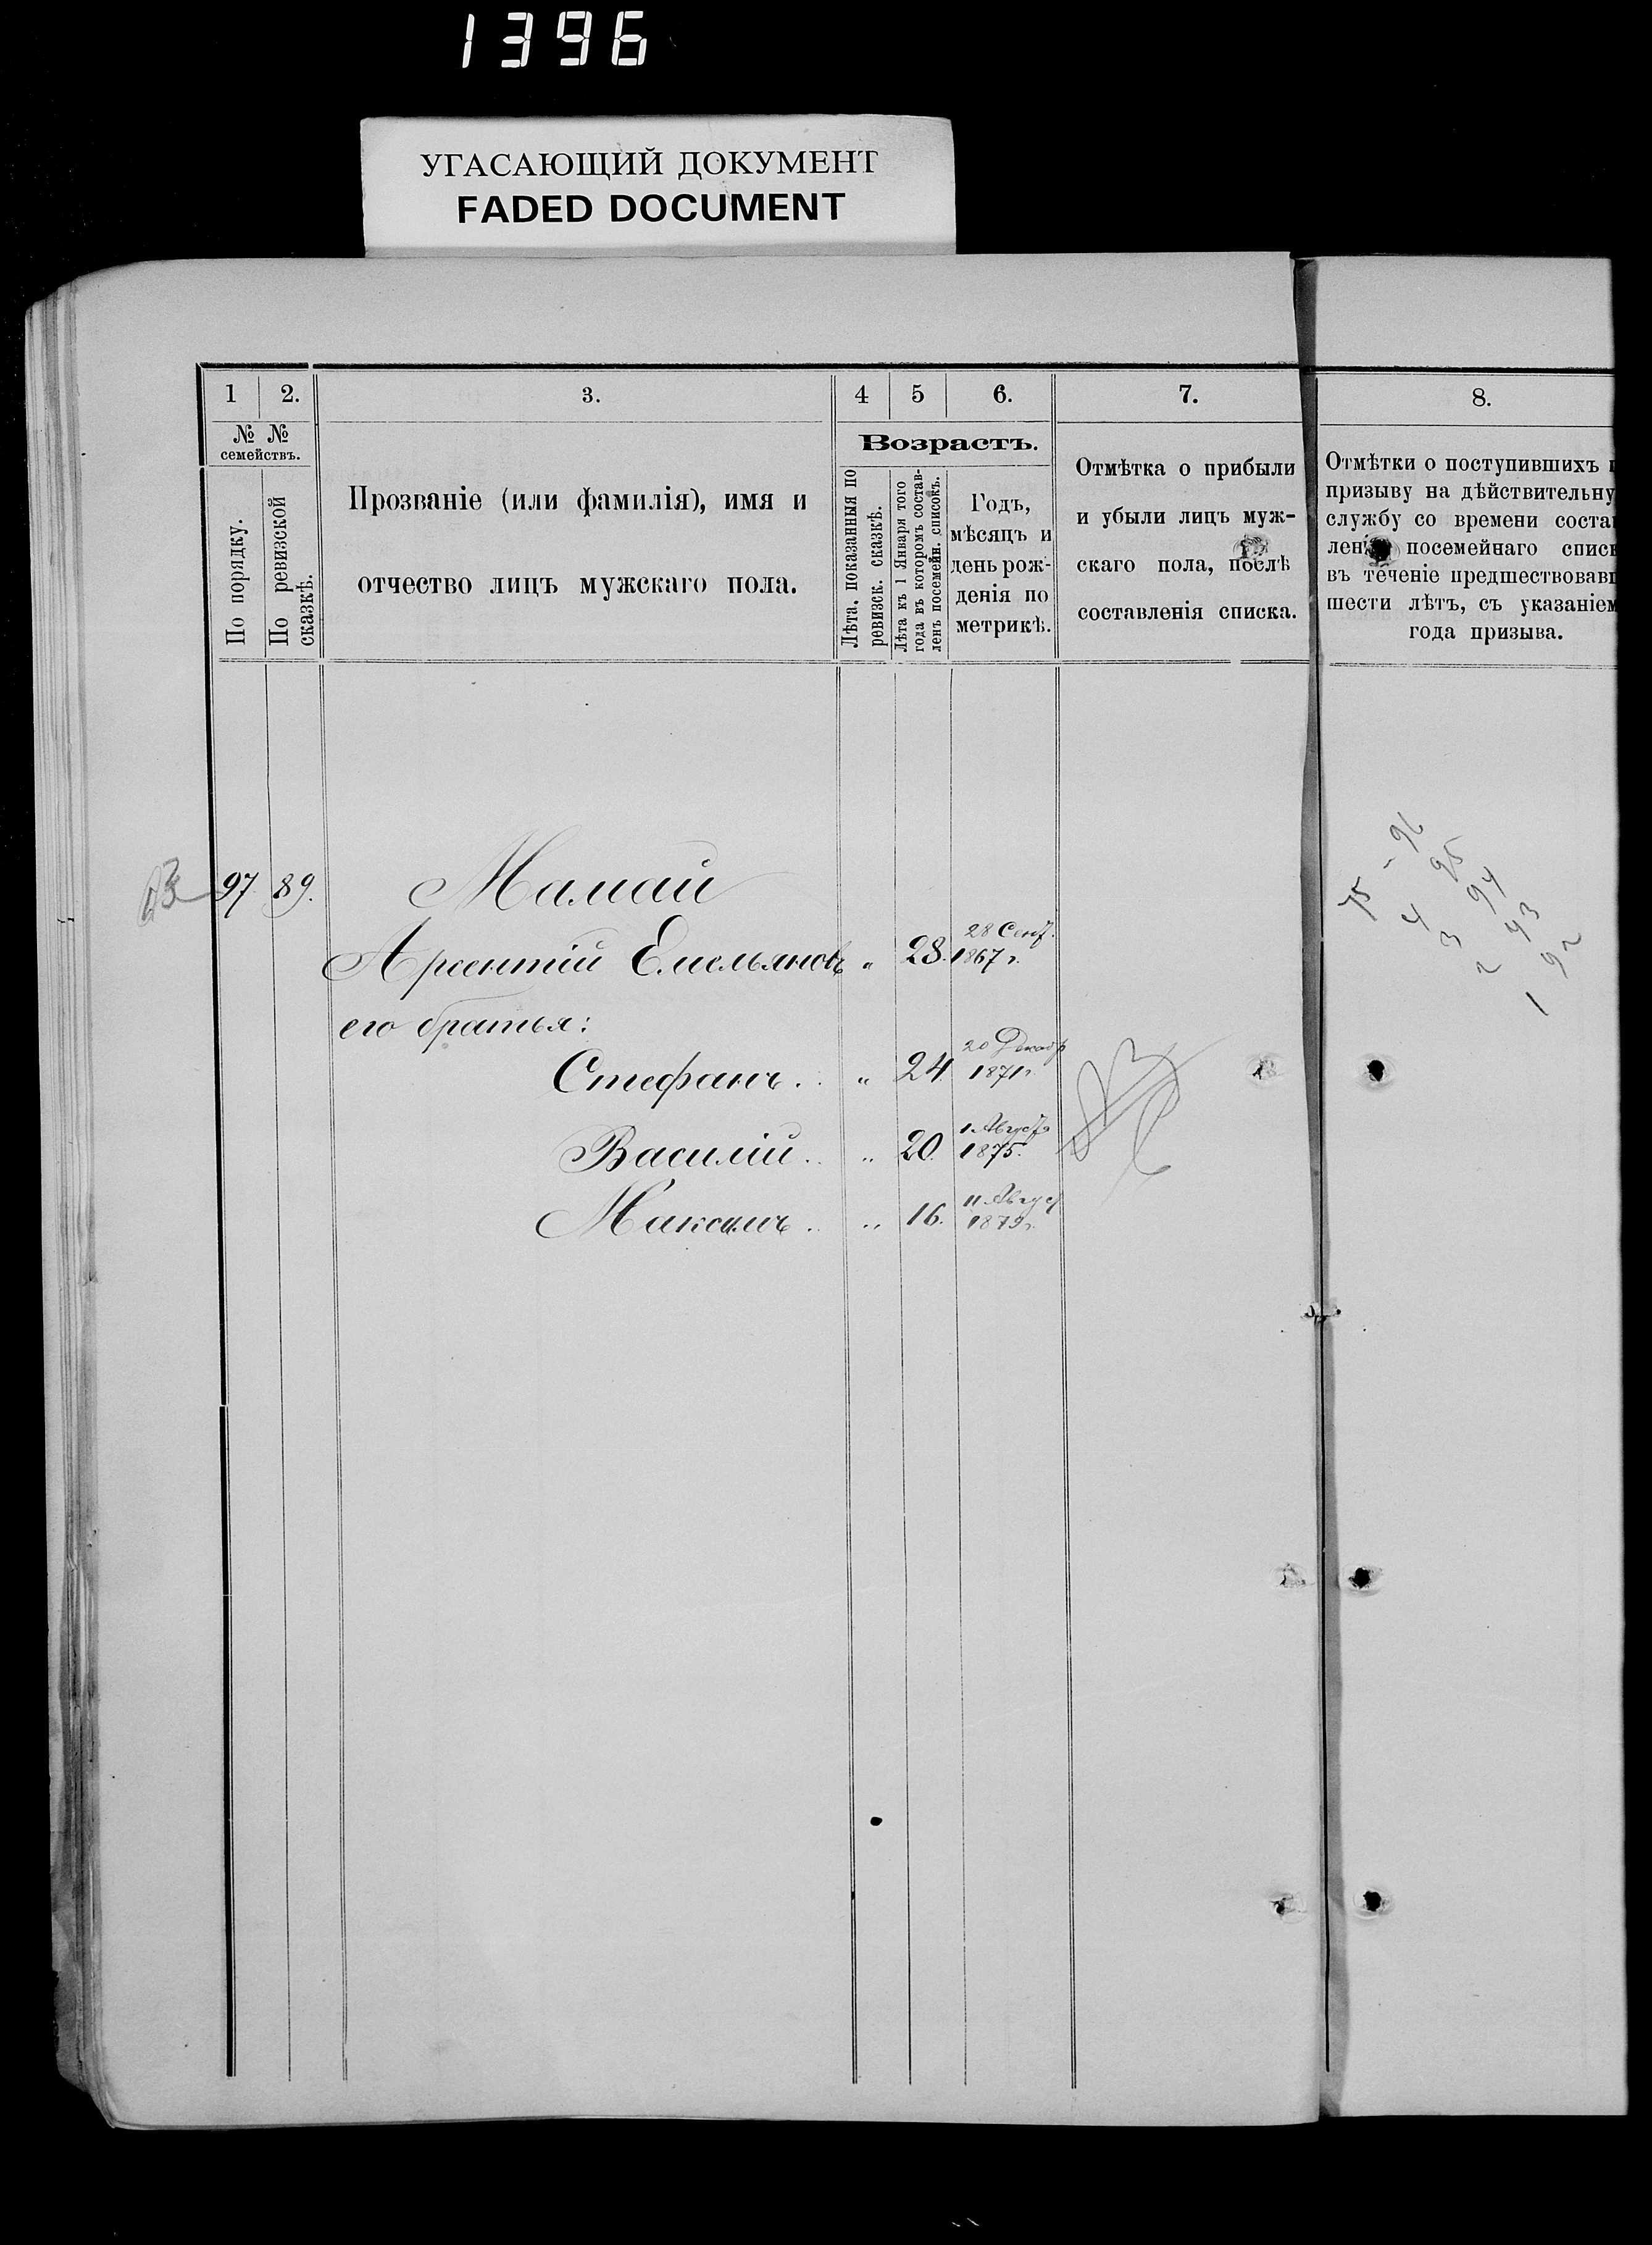 1396
УГАСАЮЩИЙ ДОКУМЕНТ
FADED DOCUMENT
1
2.
3.
4
5
6.
7.
8.
№ №
семействъ.
По порядку.
По ревизской
сказкѣ.
Прозваніе (или фамилія), имя и
отчество лицъ мужскаго пола.
Возрастъ.
Лѣта, показанныя по
ревизск. сказкѣ.
Лѣта къ 1 Января того
года въ которомъ состав-
ленъ посемейн. списокъ.
Годъ,
мѣсяцъ и
день рож-
денія по
метрикѣ.
Отмѣтка о прибыли
и убыли лицъ муж-
скаго пола, послѣ
составленія списка.
Отмѣтки о поступившихъ п
призыву на дѣйствительну
службу со времени состав
посемейнаго списк
въ теченіе предшествовавш
шести лѣтъ, съ указаніем
года призыва.
97 89. Мамай
Арсентій Емельяновъ " 28. 28 Сент.
1867 г.
его братья:
Стефанъ. . " 24. 20 Декабр
1871 г.
Василій. . " 20. 1 Августа
1875.
Максимъ . . " 16. 11 Август
1879 г.
75 - 96
4 95
3 94
2 93
1 92